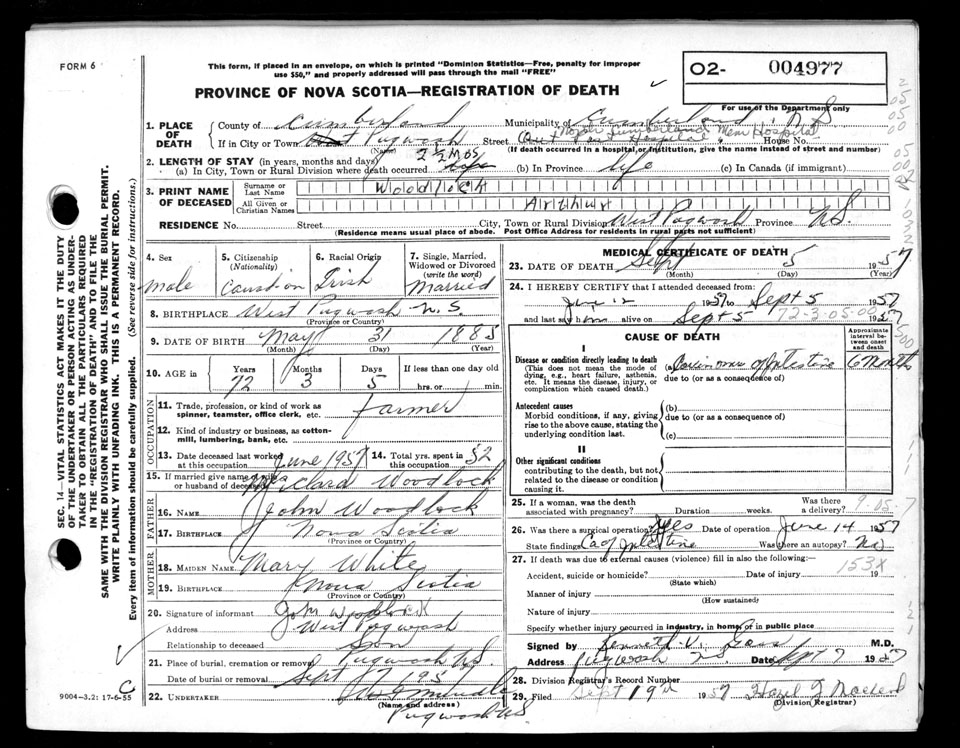 FORM 6
This form, if placed in an envelope, on which is printed "Dominion Statistics—Free, penalty for improper
use $50," and properly addressed will pass through the mail "FREE"
PROVINCE OF NOVA SCOTIA—REGISTRATION OF DEATH
O2- 004977
For use of the Department only
1. PLACE OF DEATH
County of Cumberland Municipality of Cumberland N S
If in City or Town Pugwash Street North Cumberland Mem Hospital House No.
(Name) (If death occurred in a hospital or institution, give the name instead of street and number)
2. LENGTH OF STAY (in years, months and days) 2 1/2 Mos
(a) In City, Town or Rural Division where death occurred (b) In Province Life (c) In Canada (if immigrant)
3. PRINT NAME OF DECEASED
Surname or Last Name Woodlock
All Given or Christian Names Arthur
RESIDENCE No. Street City, Town or Rural Division West Pugwash Province N.S.
(Residence means usual place of abode. Post Office Address for residents in rural parts not sufficient)
4. Sex Male
5. Citizenship (Nationality)
6. Racial Origin Irish
7. Single, Married, Widowed or Divorced (write the word) Married
8. BIRTHPLACE West Pugwash N.S.
(Province or Country)
9. DATE OF BIRTH May 31 1885
(Month) (Day) (Year)
10. AGE in Years 72 Months 3 Days 5 If less than one day old hrs. or min.
OCCUPATION
11. Trade, profession, or kind of work as spinner, teamster, office clerk, etc. Farmer
12. Kind of industry or business, as cotton-mill, lumbering, bank, etc.
13. Date deceased last worked at this occupation June 1957
14. Total yrs. spent in this occupation 52
15. If married give name of wife or husband of deceased Woodlock
FATHER
16. NAME John Woodlock
17. BIRTHPLACE Nova Scotia
(Province or Country)
MOTHER
18. MAIDEN NAME Mary White
19. BIRTHPLACE Nova Scotia
(Province or Country)
20. Signature of informant John Woodlock
Address West Pugwash
Relationship to deceased Son
21. Place of burial, cremation or removal Pugwash N.S.
Date of burial or removal Sept 7 1957
22. UNDERTAKER
(Name and address)
Pugwash N.S.
MEDICAL CERTIFICATE OF DEATH
23. DATE OF DEATH Sept 5 1957
(Day) (Year)
24. I HEREBY CERTIFY that I attended deceased from:
June 12 1957 to Sept 5 1957
and last saw him alive on Sept 5 1957
72-3-05-00
CAUSE OF DEATH
Approximate interval between onset and death
I
Disease or condition directly leading to death
(This does not mean the mode of dying, e.g., heart failure, asthenia, etc. It means the disease, injury, or complication which caused death.)
(a) Carcinoma of Intestine 6 Months
due to (or as a consequence of)
Antecedent causes
Morbid conditions, if any, giving rise to the above cause, stating the underlying condition last.
(b)
due to (or as a consequence of)
(c)
II
Other significant conditions
contributing to the death, but not related to the disease or condition causing it.
25. If a woman, was the death associated with pregnancy? Duration weeks. Was there a delivery?
26. Was there a surgical operation? Yes Date of operation June 14 1957
State findings Ca of Intestine Was there an autopsy? No
27. If death was due to external causes (violence) fill in also the following:
Accident, suicide or homicide? Date of injury 19
(State which)
153X
Manner of injury
(How sustained)
Nature of injury
Specify whether injury occurred in industry, in home, or in public place
Signed by Kenneth V. M.D.
Address Pugwash Date Sept 7 1957
28. Division Registrar's Record Number
29. Filed Sept 19th 1957
(Division Registrar)
9004-3.2: 17-6-55
SEC. 14—VITAL STATISTICS ACT MAKES IT THE DUTY
OF THE UNDERTAKER OR PERSON ACTING AS UNDER-
TAKER TO OBTAIN ALL THE PARTICULARS REQUIRED
IN THE "REGISTRATION OF DEATH" AND TO FILE THE
SAME WITH THE DIVISION REGISTRAR WHO SHALL ISSUE THE BURIAL PERMIT.
WRITE PLAINLY WITH UNFADING INK. THIS IS A PERMANENT RECORD.
Every item of information should be carefully supplied. (See reverse side for instructions.)